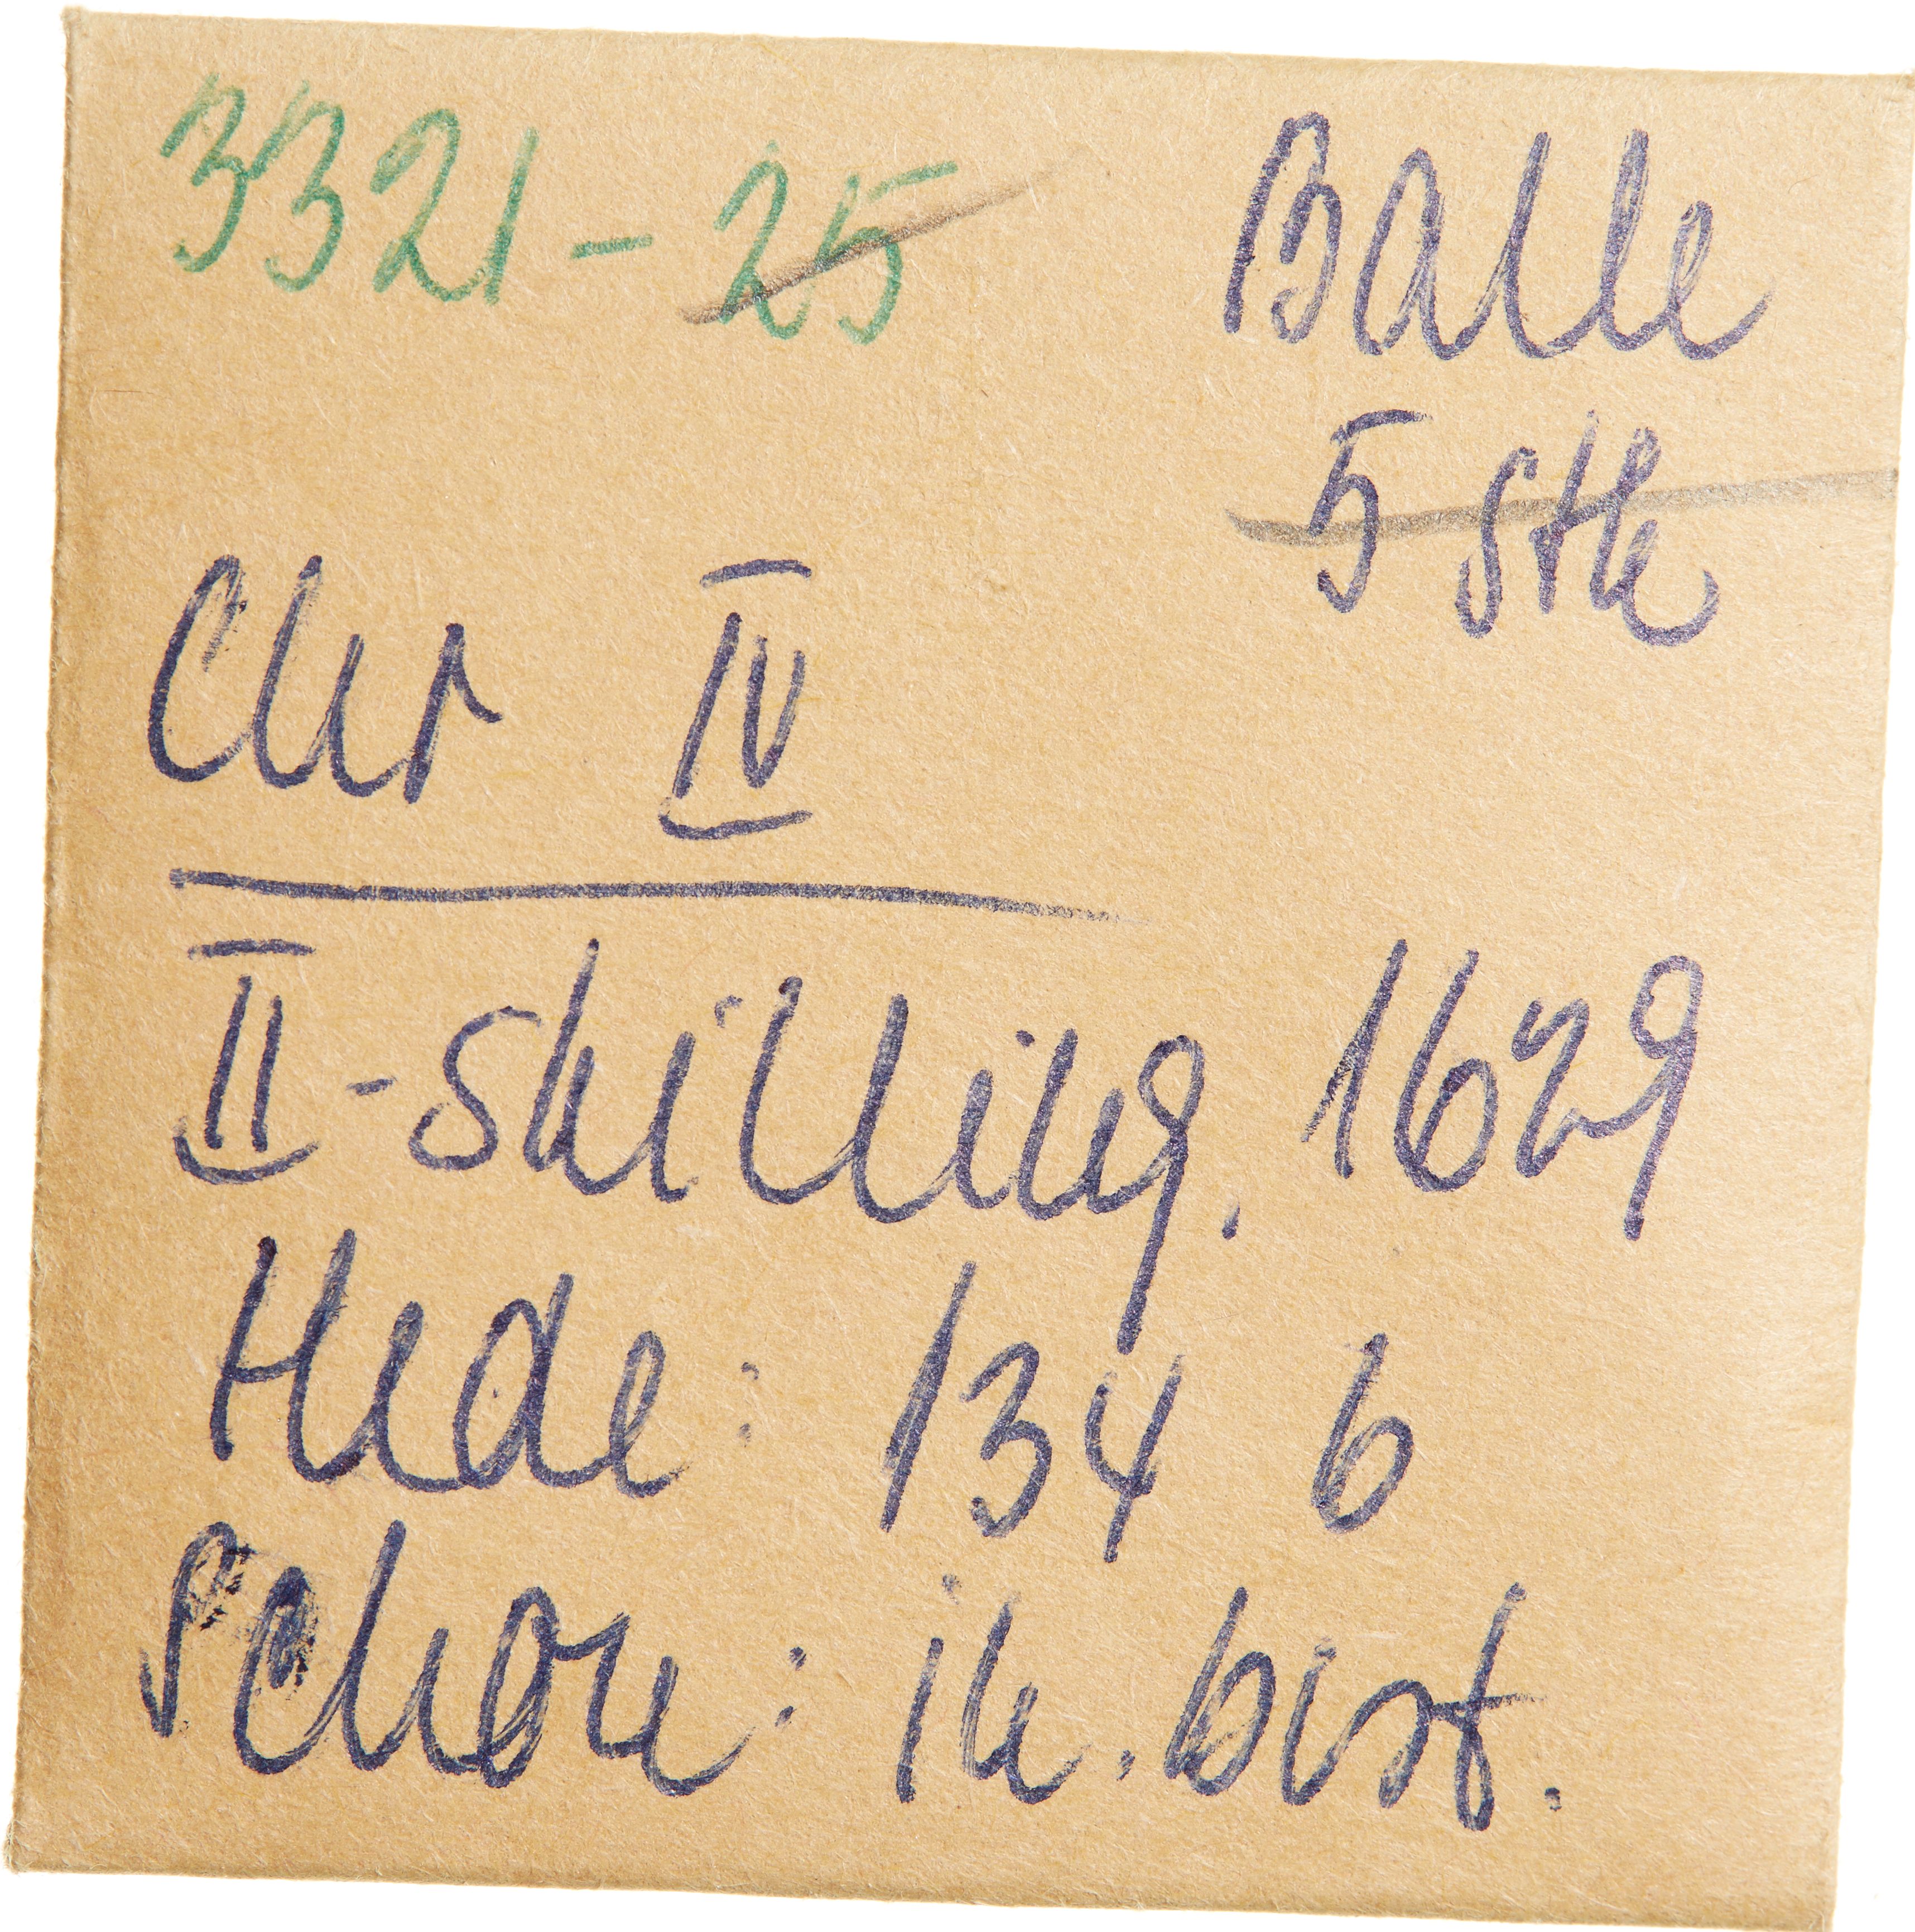 3321 - 25 Balle
5 stk
Chr IV
II - skilling. 1629
Hede: 134 b
Schou: ik. best.